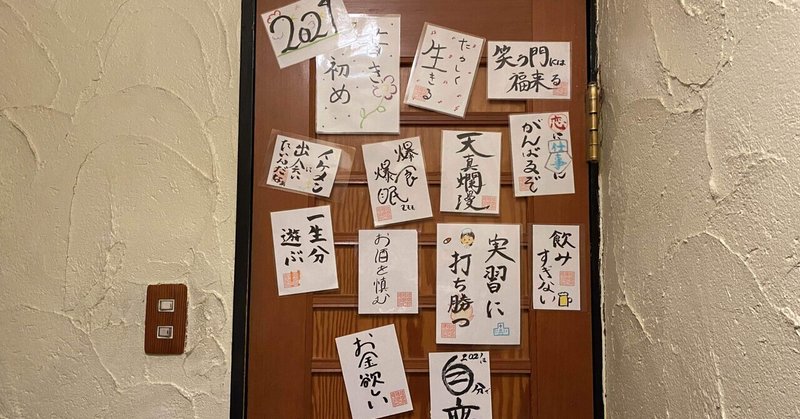 2021
初め
たのしく
生きる
笑う門には
福来る
イケメン
出会い
爆食
爆眠
天真爛漫
恋に仕事に
がんばるぞ
一生分
遊ぶ
お酒を慎む
実習に
打ち勝つ
飲み
すぎない
お金欲しい
2021は
自分